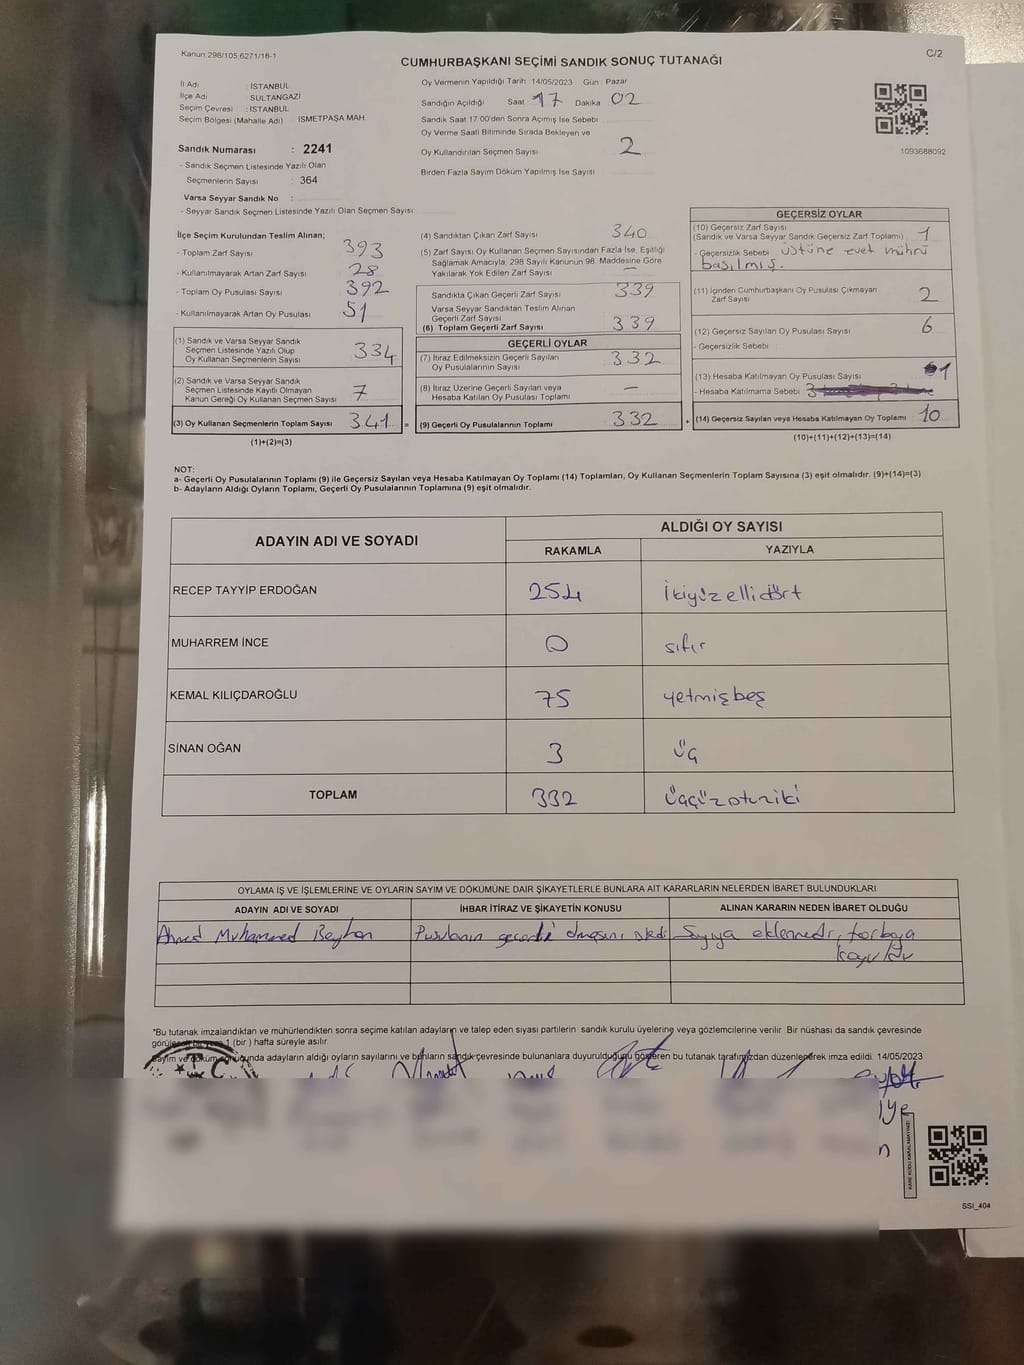 Kanun:298/105,6271/18-1
C/2
CUMHURBAŞKANI SEÇİMİ SANDIK SONUÇ TUTANAĞI
İl Adı : İSTANBUL
İlçe Adı : SULTANGAZİ
Seçim Çevresi : İSTANBUL
Seçim Bölgesi (Mahalle Adı) İSMETPAŞA MAH.
Sandık Numarası : 2241
- Sandık Seçmen Listesinde Yazılı Olan
Seçmenlerin Sayısı : 364
Varsa Seyyar Sandık No :
- Seyyar Sandık Seçmen Listesinde Yazılı Olan Seçmen Sayısı:
Oy Vermenin Yapıldığı Tarih 14/05/2023 Gün : Pazar
Sandığın Açıldığı Saat 17 Dakika 02
Sandık Saat 17:00'den Sonra Açımış İse Sebebi
Oy Verme Saati Bitiminde Sırada Bekleyen ve
Oy Kullandırılan Seçmen Sayısı 2
Birden Fazla Sayım Döküm Yapılmış İse Sayısı
1093688092
İlçe Seçim Kurulundan Teslim Alınan;
- Toplam Zarf Sayısı 393
- Kullanılmayarak Artan Zarf Sayısı 28
- Toplam Oy Pusulası Sayısı 392
- Kullanılmayarak Artan Oy Pusulası 51
(1) Sandık ve Varsa Seyyar Sandık
Seçmen Listesinde Yazılı Olup
Oy Kullanan Seçmenlerin Sayısı 334
(2) Sandık ve Varsa Seyyar Sandık
Seçmen Listesinde Kayıtlı Olmayan
Kanun Gereği Oy Kullanan Seçmen Sayısı 7
(3) Oy Kullanan Seçmenlerin Toplam Sayısı 341 =
(1)+(2)=(3)
(4) Sandıktan Çıkan Zarf Sayısı 340
(5) Zarf Sayısı Oy Kullanan Seçmen Sayısından Fazla İse, Eşitliği
Sağlamak Amacıyla, 298 Sayılı Kanunun 98. Maddesine Göre
Yakılarak Yok Edilen Zarf Sayısı —
Sandıkta Çıkan Geçerli Zarf Sayısı 339
Varsa Seyyar Sandıktan Teslim Alınan
Geçerli Zarf Sayısı
(6) Toplam Geçerli Zarf Sayısı 339
GEÇERLİ OYLAR
(7) İtiraz Edilmeksizin Geçerli Sayılan
Oy Pusulalarının Sayısı 332
(8) İtiraz Üzerine Geçerli Sayılan veya
Hesaba Katılan Oy Pusulası Toplamı —
(9) Geçerli Oy Pusulalarının Toplamı 332 +
GEÇERSİZ OYLAR
(10) Geçersiz Zarf Sayısı
(Sandık ve Varsa Seyyar Sandık Geçersiz Zarf Toplamı) 1
- Geçersizlik Sebebi üstüne evet mührü
basılmış.
(11) İçinden Cumhurbaşkanı Oy Pusulası Çıkmayan
Zarf Sayısı 2
(12) Geçersiz Sayılan Oy Pusulası Sayısı 6
- Geçersizlik Sebebi
(13) Hesaba Katılmayan Oy Pusulası Sayısı 1
- Hesaba Katılmama Sebebi
(14) Geçersiz Sayılan veya Hesaba Katılmayan Oy Toplamı 10
(10)+(11)+(12)+(13)=(14)
NOT:
a- Geçerli Oy Pusulalarının Toplamı (9) ile Geçersiz Sayılan veya Hesaba Katılmayan Oy Toplamı (14) Toplamları, Oy Kullanan Seçmenlerin Toplam Sayısına (3) eşit olmalıdır. (9)+(14)=(3)
b- Adayların Aldığı Oyların Toplamı, Geçerli Oy Pusulalarının Toplamına (9) eşit olmalıdır.
ADAYIN ADI VE SOYADI ALDIĞI OY SAYISI
RAKAMLA YAZIYLA
RECEP TAYYİP ERDOĞAN 254 İkiyüzellidört
MUHARREM İNCE 0 sıfır
KEMAL KILIÇDAROĞLU 75 yetmişbeş
SİNAN OĞAN 3 üç
TOPLAM 332 üçyüzotuziki
OYLAMA İŞ VE İŞLEMLERİNE VE OYLARIN SAYIM VE DÖKÜMÜNE DAİR ŞİKAYETLERLE BUNLARA AİT KARARLARIN NELERDEN İBARET BULUNDUKLARI
ADAYIN ADI VE SOYADI İHBAR İTİRAZ VE ŞİKAYETİN KONUSU ALINAN KARARIN NEDEN İBARET OLDUĞU
Ahmed Muhammed Beyhan Pusulanın olmasını Sayıya eklenmedi, torbaya
koyuldu
*Bu tutanak imzalandıktan ve mühürlendikten sonra seçime katılan adayların ve talep eden siyasi partilerin sandık kurulu üyelerine veya gözlemcilerine verilir. Bir nüshası da sandık çevresinde
görülecek bir yere 1 (bir ) hafta süreyle asılır
Sayım ve döküm sonucunda adayların aldığı oyların sayılarını ve bunların sandık çevresinde bulunanlara duyurulduğunu gösteren bu tutanak tarafımızdan düzenlenerek imza edildi. 14/05/2023
T.C.
KARE KODU KARALAMAYINIZ!
SSİ_404